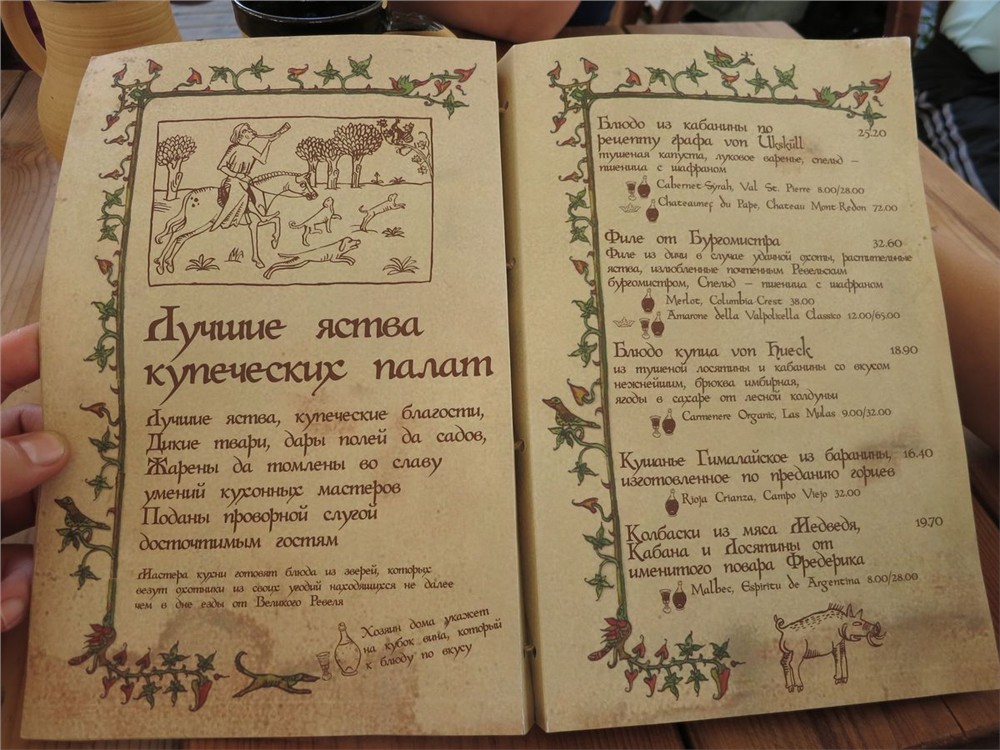 Лучшие яства
купеческих палат
Лучшие яства, купеческие благости,
Дикие твари, дары полей да садов,
Жарены да томлены во славу
умений кухонных мастеров
Поданы проворной слугой
досточтимым гостям
Мастера кухни готовят блюда из зверей, которых
везут охотники из своих угодий находящихся не далее
чем в дне езды от Великого Ревеля
Хозяин дома укажет
на кубок вина, который
к блюду по вкусу
Блюдо из кабанины по 25.20
рецепту графа von Uksküll
тушеная капуста, луковое варенье, спельд –
пшеница с шафраном
Cabernet-Syrah, Val. St. Pierre 8.00/28.00
Chateaunef du Pape, Chateau Mont-Redon 72.00
Филе от Бургомистра 32.60
Филе из дичи в случае удачной охоты, растительные
яства, излюбленные почтенным Ревельским
бургомистром, Спельд – пшеница с шафраном
Merlot, Columbia Crest 38.00
Amarone della Valpolicella Classico 12.00/65.00
Блюдо купца von Hueck 18.90
из тушеной лосятины и кабанины со вкусом
нежнейшим, брюква имбирная,
ягоды в сахаре от лесной колдуньи
Carmenere Organic, Las Mulas 9.00/32.00
Кушанье Гималайское из баранины, 16.40
изготовленное по преданию горцев
Rioja Crianza, Campo Viejo 32.00
Колбаски из мяса Медведя, 19.70
Кабана и Лосятины от
именитого повара Фредерика
Malbec, Espiritu de Argentina 8.00/28.00